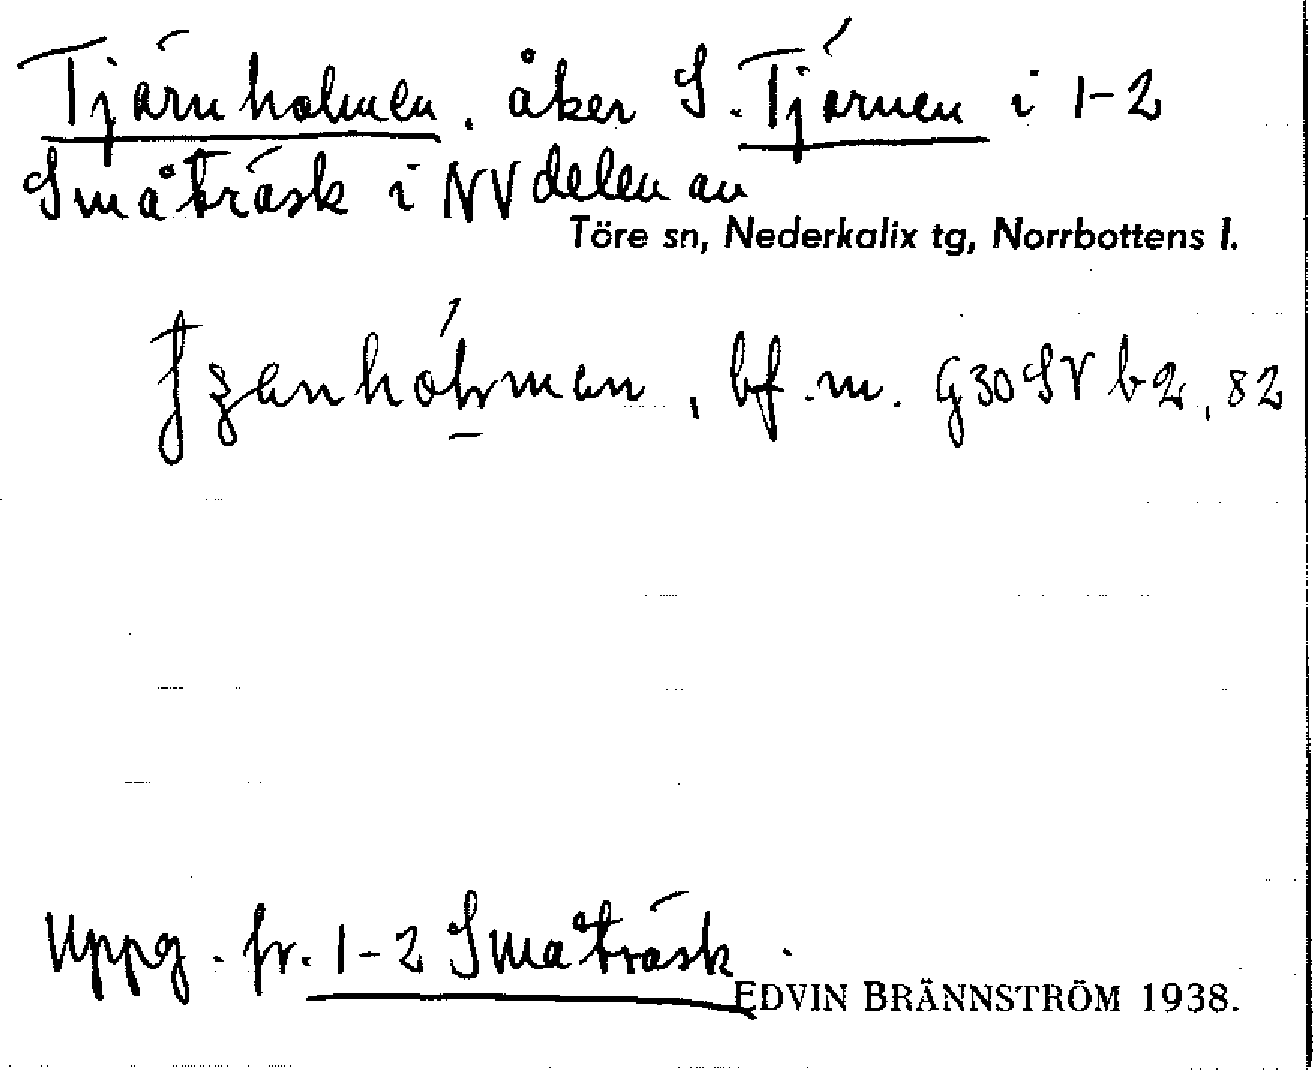 Tjärnholmen, åker S. Tjärnen i 1-2
Småträsk i NV delen av
Töre sn, Nederkalix tg, Norrbottens l.
bf. m. G30SV b2, 82
Uppg. fr. 1-2 Småträsk.
EDVIN BRÄNNSTRÖM 1938.